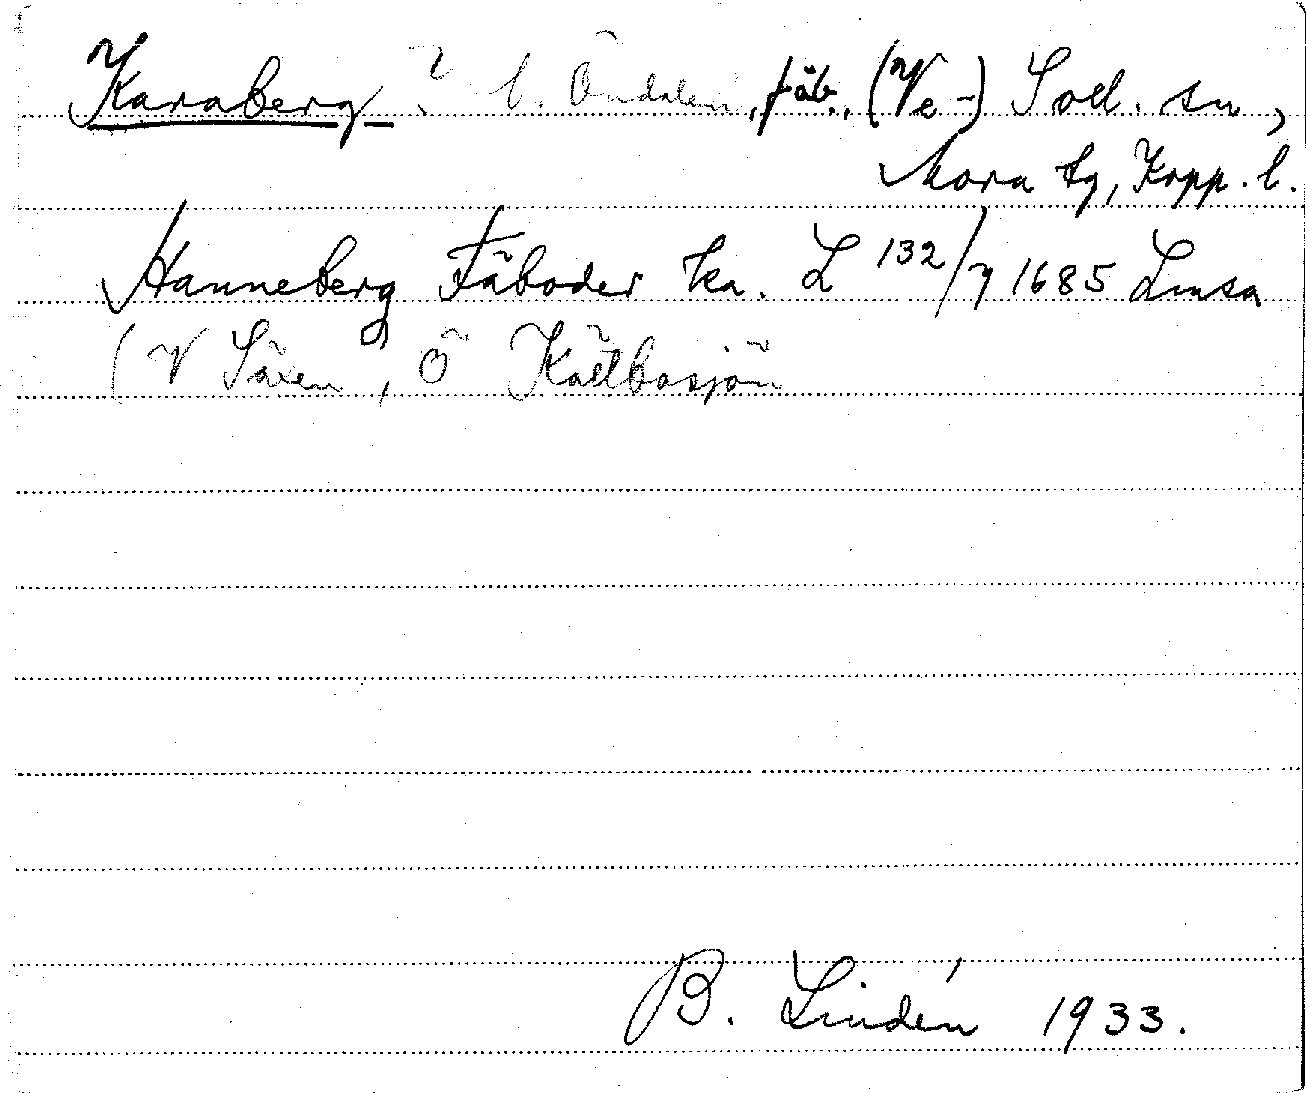 Karaberg ? l. Öndalen, fäb., (Ve-) Soll. sn,
Mora tg, Kopp. l.
Hanneberg Fäboder ka. L 132/7 1685 Lmsa
(V Säxen, Ö Kättbosjön
B. Lindén 1933.